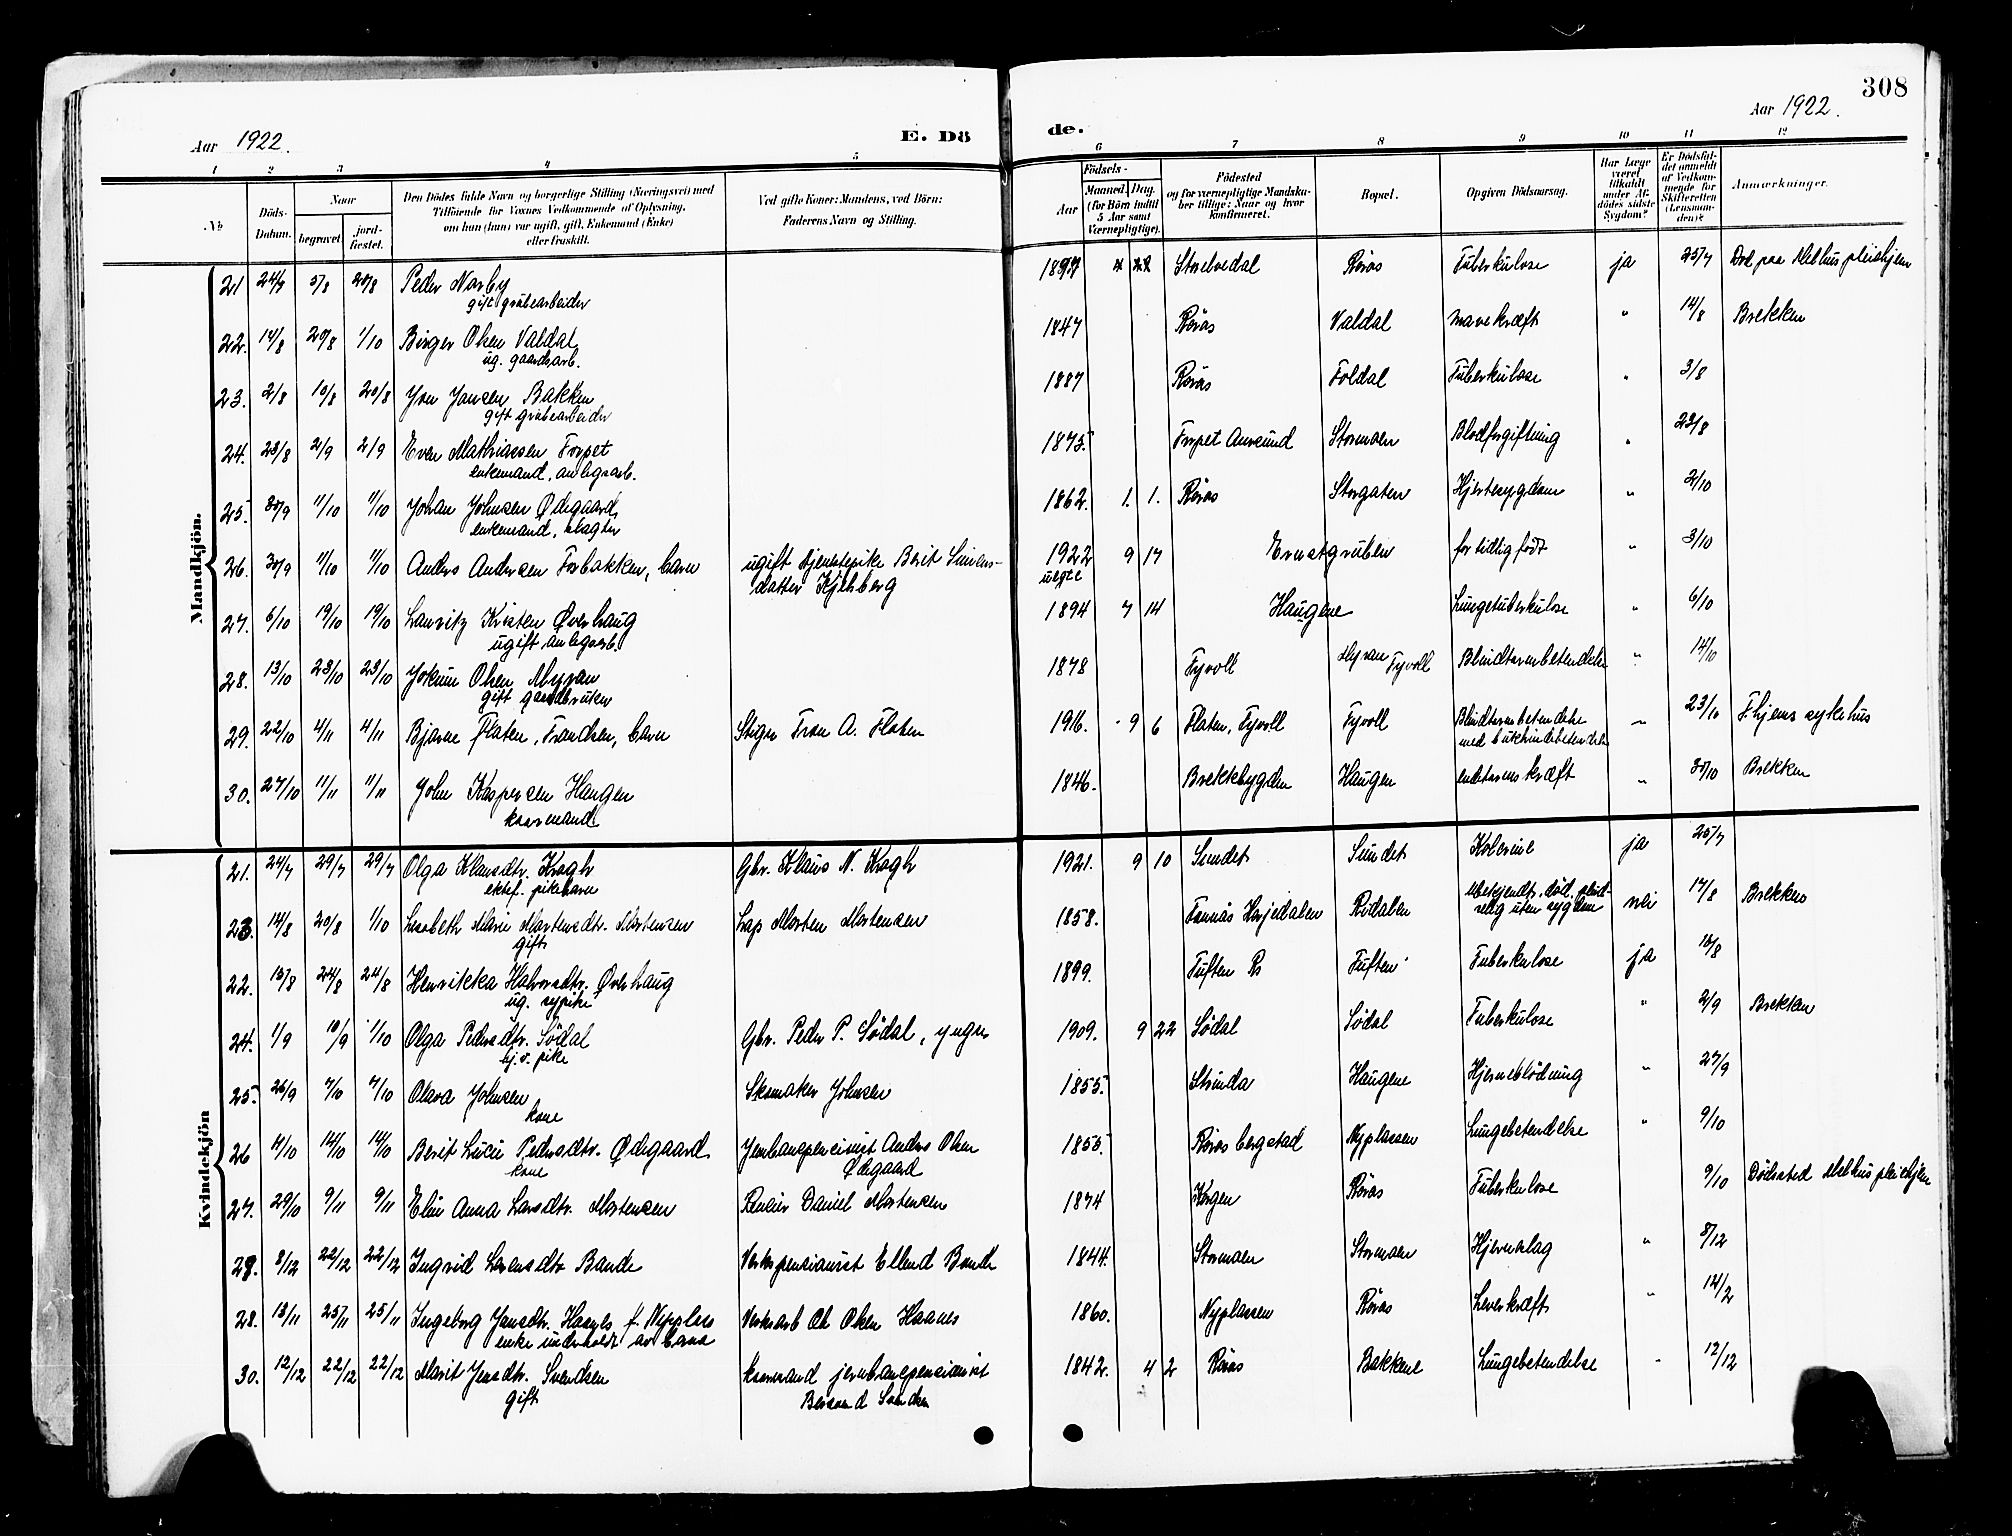 308
Aar 1922.
E. Dö
de.
Aar 1922.
1 2 3 4 5 6 7 8 9 10 11 12
No
Döds-Datum.
Naar
begravet.
jord-fæstet.
Den Dödes fulde Navn og borgerlige Stilling (Næringsvei) med
Tilföiende for Voxnes Vedkommende af Oplysning,
om han (hun) var ugift, gift, Enkemand (Enke)
eller fraskilt.
Ved gifte Koner: Mandens, ved Börn:
Faderens Navn og Stilling.
Födsels-
Aar
Maaned.
Dag.
(for Börn indtil
5 Aar samt
Værnepligtige).
Födested
og for værnepligtige Mandska-
ber tillige: Naar og hvor
konfirmeret.
Bopæl.
Opgiven Dödsaarsag.
Har Læge
været
tilkaldt
under Af-
dödes sidste
Sygdom?
Er Dödsfal-
det anmeldt
af Vedkom-
mende for
Skifteretten
(Lensman-
den)?
Anmærkninger.
Mandkjön.
21 24/7 5/8 20/8 Peder Narby 1897 Storelvedal Röros Tuberkulose ja 25/7 Död paa Melhus pleiehjem
gift grubearbeider
22. 14/8 20/8 1/10 Birger Olsen Valdal 1847 Röros Valdal mavekræft " 14/8 Brekken
ug. gaardsarb.
23. 2/8 10/8 20/8 Jon Jansen Bakken 1887 Röros Foldal Tuberkulose " 3/8
gift grubearbeider
24. 23/8 2/9 2/9 Even Mathiassen Torpet 1875 Torpet Aursund Stormoen Blodforgiftning " 23/8
enkemand, anlegsarb.
25. 30/9 11/10 11/10 Johan Johnsen Ødegaard 1862. 1. 1. Röros Storgaten Hjertesygdom " 2/10
enkemand, slagter
26. 30/9 11/10 11/10 Anders Andersen Forbakken, barn ugift tjenestepike Berit Simens- 1922 9 17 Ernstgruben for tidlig født " 3/10
datter Kjelsberg uegte
27. 6/10 19/10 19/10 Lauritz Kristen Øverhaug 1894 7 14 Haugene Lungetuberkulose " 6/10
ugift anlegsarb.
28. 13/10 23/10 23/10 Jokum Olsen Myran 1878 Fyvoll Myran Fyvoll Blindtarmbetendelse " 14/10
gift gaardbruker
29. 22/10 4/11 4/11 Bjarne Flaten, Frandsen, barn Stiger Fran A. Flaten 1916. 9 6 Flaten, Fyvoll Fyvoll Blindtarmbetendelse " 23/10 Thjems sykehus
med bukhindebetendelse
30. 27/10 11/11 11/11 John Kaspersen Haugen 1846. Brekkebygden Haugen endetarms kræft " 30/10 Brekken
kaarmand
Kvindekjön
21. 24/7 29/7 29/7 Olga Klausdtr. Kragh Gbr. Klaus N. Kragh 1921. 9 10 Sundet Sundet Kolerine ja 25/7
ektef. pikebarn
23. 14/8 20/8 1/10 Lisabeth Marie Mortensdtr. Mortensen Lap Morten Mortensen 1858. Tännäs Herjedalen Rödalen ubekjendt. död plud-
selig uten sygdom nei 17/8 Brekken
gift
22. 13/8 24/8 24/8 Henrikka Halvorsdtr. Øverhaug 1899. Tuften Rs Tuften Tuberkulose ja 16/8
ug. sypike
24. 1/9 10/9 1/10 Olga Pedersdtr. Södal Gbr. Peder P. Södal, yngre 1909. 9 22 Södal Södal Tuberkulose " 2/9 Brekken
hj.v. pike
25. 26/9 7/10 7/10 Olava Johnsen Skomaker Johnsen 1855. Strinda Haugene Hjerneblödning " 27/9
kone
26 4/10 14/10 14/10 Berit Lucie Pedersdtr. Ødegaard Jernbanepensionist Anders Olsen 1855. Röros bergstad Nyplassen Lungebetendelse " 9/10
kone Ødegaard
27. 29/10 9/11 9/11 Elin Anna Larsdtr. Mortensen Reneier Daniel Mortensen 1874 Korgen Röros Tuberkulose 9/10 Dödssted Melhus pleiehjem
29. 8/12 22/12 22/12 Ingrid Larsdtr Bande Verkspensionist Ellend Bande 1844. Stormoen Stormoen Hjerneslag " 8/12
28. 13/11 25/11 25/11 Ingeborg Jansdtr. Haanes f. Nyplass Verksarb Ole Olsen Haanes 1860. Nyplassen Röros Leverkræft " 14/2
enke underholdt av barn
30. 12/12 22/12 22/12 Marit Jensdtr. Svendsen kaarmand jernbanepensionist 1842. 4 2 Röros Bakkene Lungebetendelse " 12/12
gift Svendsen